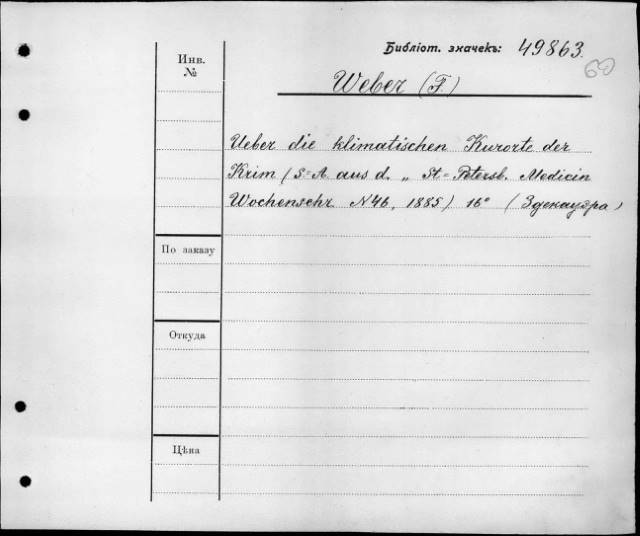 Библіот. значекъ: 49863.
60
Инв.
№
Weber (F.)
Ueber die klimatischen Kurorte der
Krim (S=A. aus d. „ St=Petersb. Medicin
Wochenschr. N46, 1885) 16° (Здекауэра)
По заказу
Откуда
Цѣна